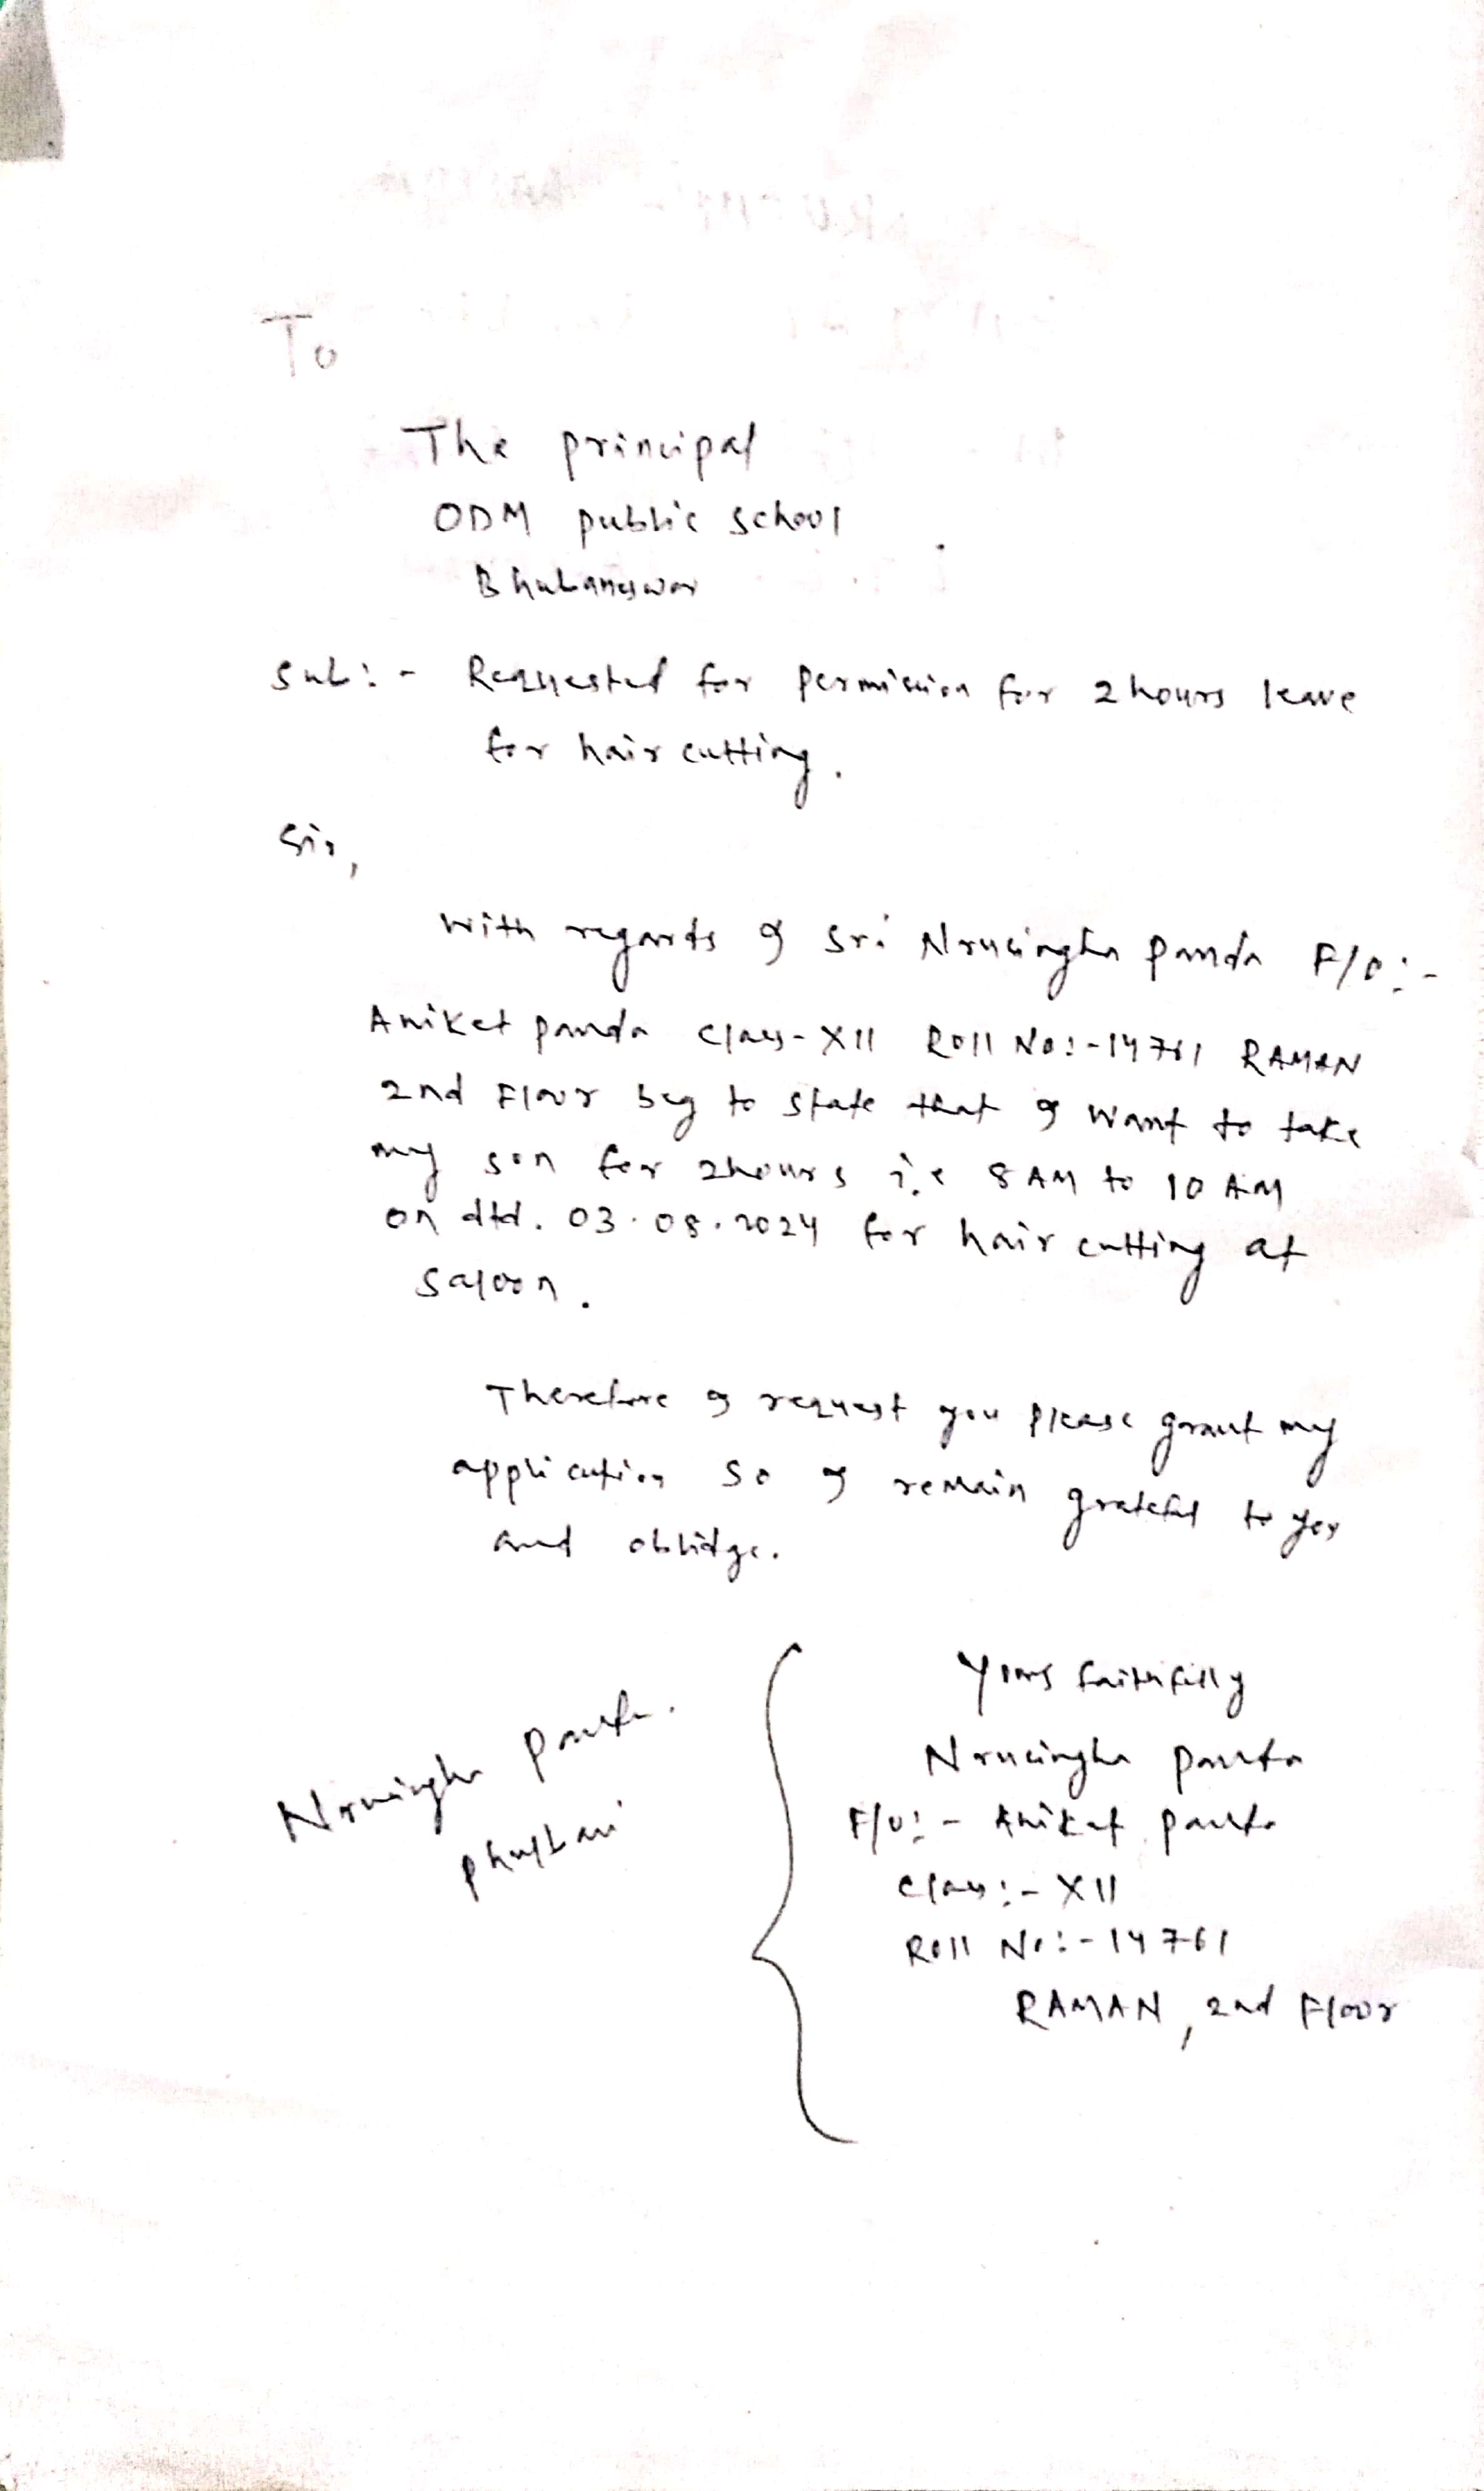 To
The principal
ODM public school
Bhubaneswar
Sub:- Requested for permission for 2 hours leave
for hair cutting.
Sir,
With regards I Sri Nrusingha Panda F/O:-
Aniket panda Class-XII Roll No:-14761 RAMAN
2nd Floor beg to state that I want to take
my son for 2hours i.e 8 AM to 10 AM
on dtd. 03.08.2024 for hair cutting at
saloon.
Therefore I request you please grant my
application so I remain grateful to you
and oblidge.
Yours faithfully
Nrusingha panda
F/O:- Aniket panda
Class:- XII
Roll No:- 14761
RAMAN, 2nd Floor
Nrusingha panda.